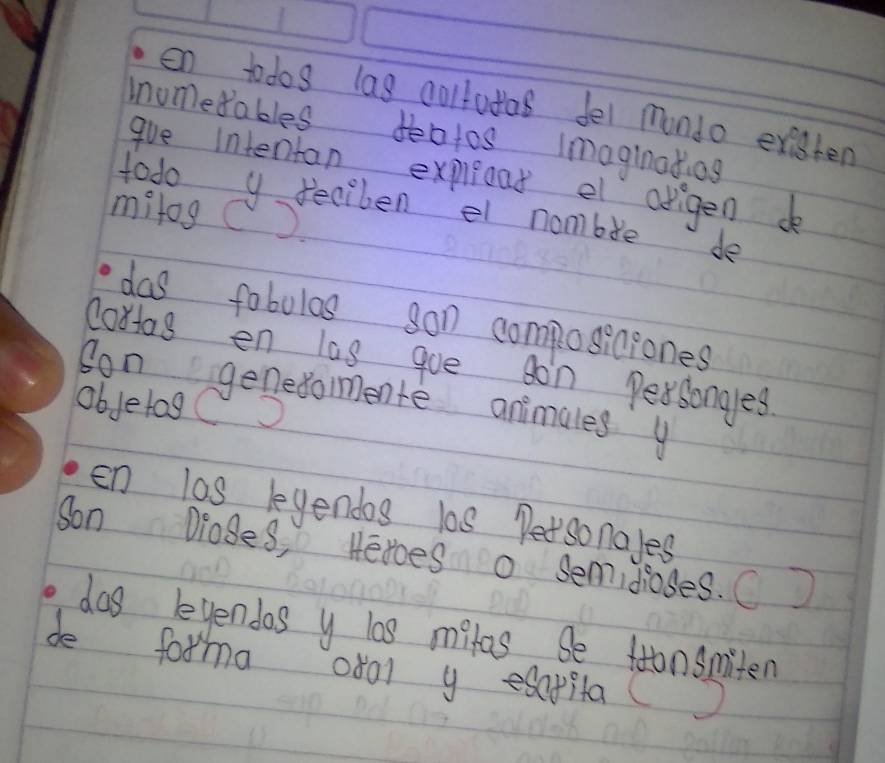 • en todas las culturas del mundo existen
inumerables reatos imaginarios
que intentan explicar el origen de
todo y reciben el nombre de
mitos ( ).
• las fabulas son composiciones
cortas en las que son personajes.
son generalmente animales y
objetos ( )
• en las leyendas los personajes
son Dioses, Héroes o semidioses. ( )
• las leyendas y los mitos se transmiten
de forma oral y escrita ( )